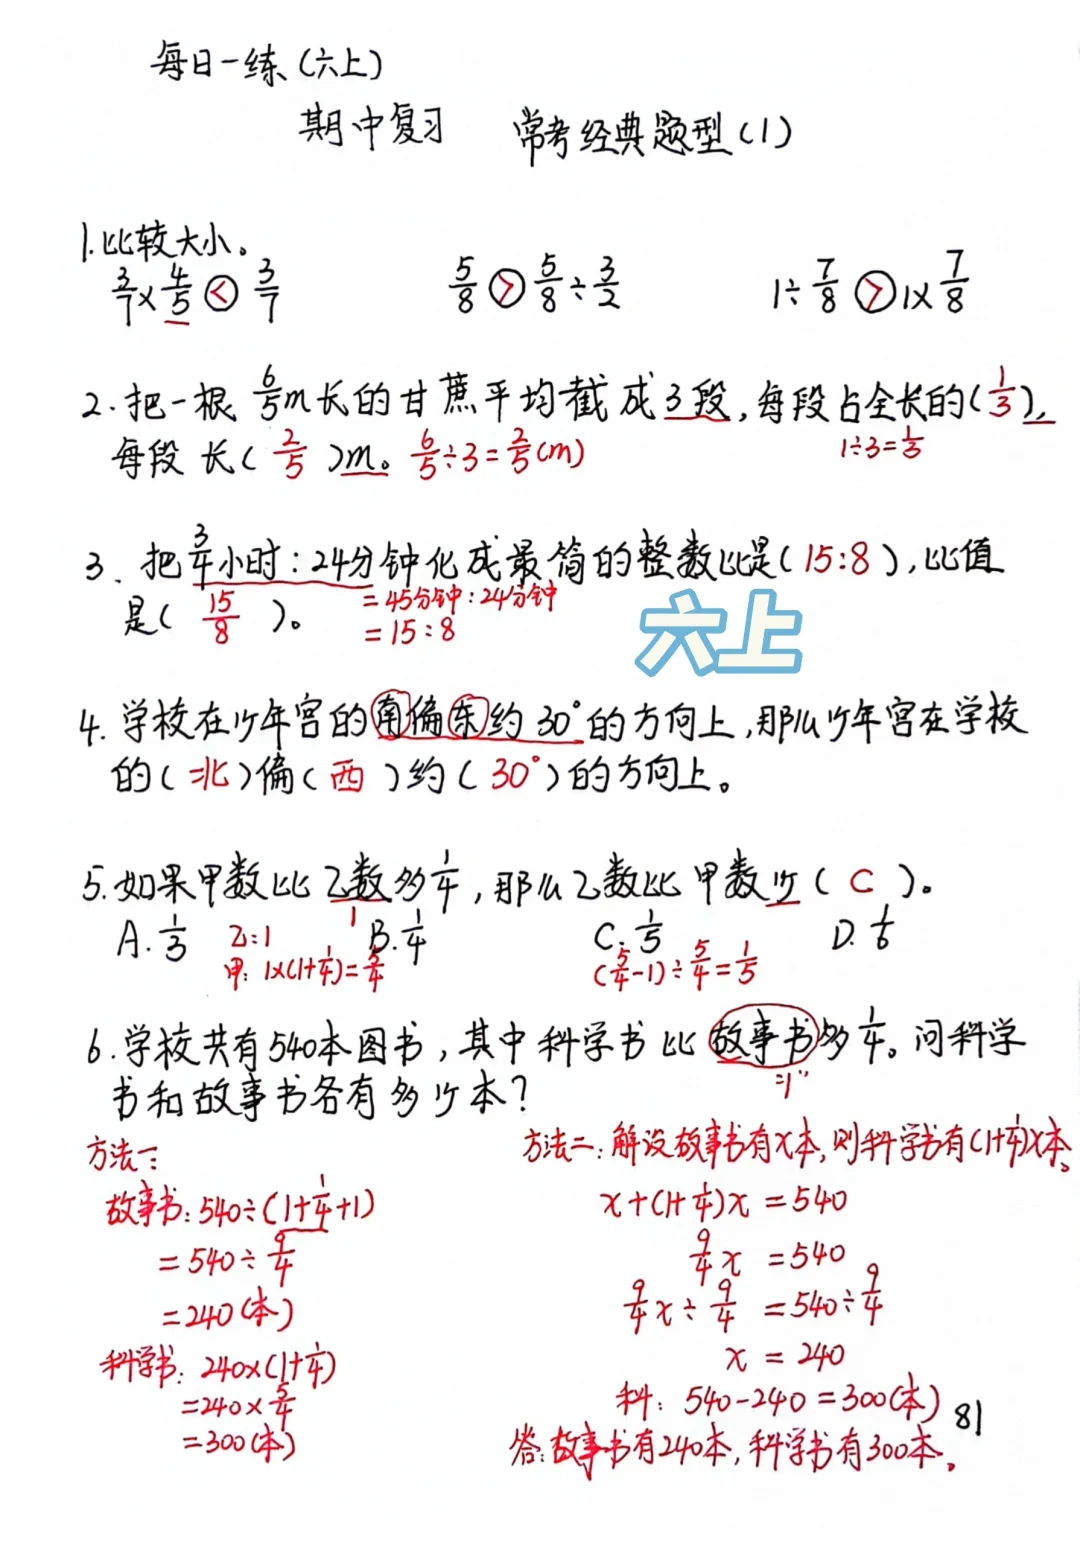 每日一练(六上)
期中复习 常考经典题型(1)
1.比较大小。
3/7×4/5<3/7 5/8>5/8÷3/2 1÷7/8>1×7/8
2.把一根6/5m长的甘蔗平均截成3段,每段占全长的(1/3),
1÷3=1/3
每段长(2/5)m。 6/5÷3=2/5(m)
3.把3/4小时:24分钟化成最简的整数比是(15:8),比值
是(15/8)。
=45分钟:24分钟
=15:8
六上
4.学校在少年宫的南偏东约30°的方向上,那么少年宫在学校
的(北)偏(西)约(30°)的方向上。
5.如果甲数比乙数多1/4,那么乙数比甲数少(C)。
1
A.1/3 B.1/4 C.1/5 D.1/6
乙:1
甲:1×(1+1/4)=5/4 (5/4-1)÷5/4=1/5
6.学校共有540本图书,其中科学书比故事书多1/4。问科学
"1"
书和故事书各有多少本?
方法一:
故事书:540÷(1+1/4+1)
=540÷9/4
=240(本)
科学书:240×(1+1/4)
=240×5/4
=300(本)
方法二:解设故事书有x本,则科学书有(1+1/4)x本。
x+(1+1/4)x=540
9/4x=540
9/4x÷9/4=540÷9/4
x=240
科:540-240=300(本)
答:故事书有240本,科学书有300本。
81